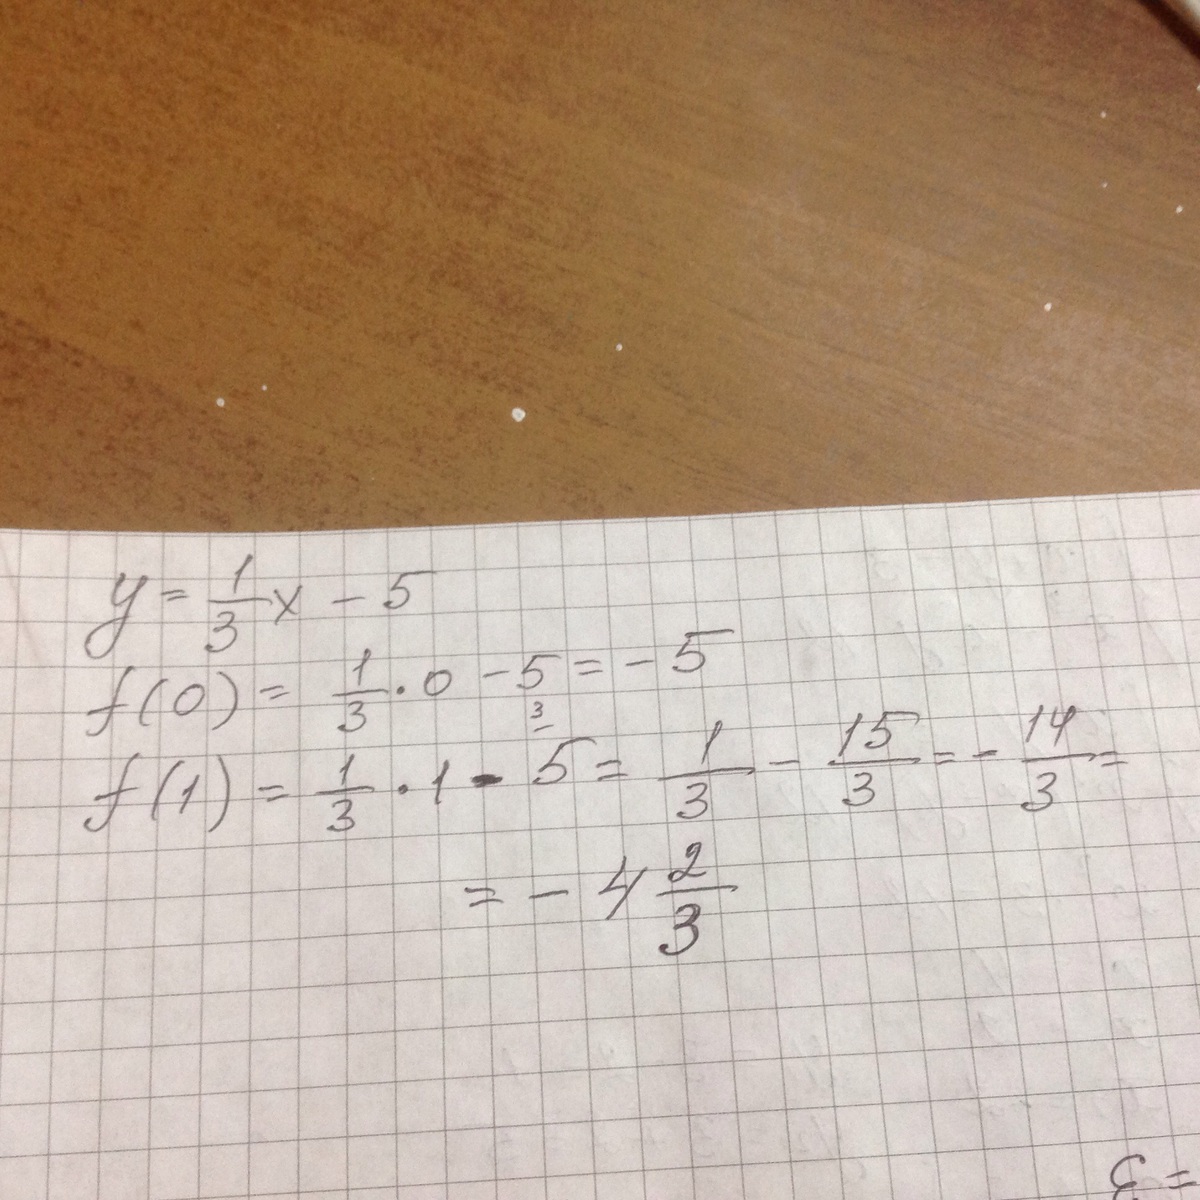 y = 1/3 x - 5
f(0) = 1/3 · 0 - 5 = - 5
f(1) = 1/3 · 1 - 5 3 = 1/3 - 15/3 = - 14/3 =
= - 4 2/3
C =